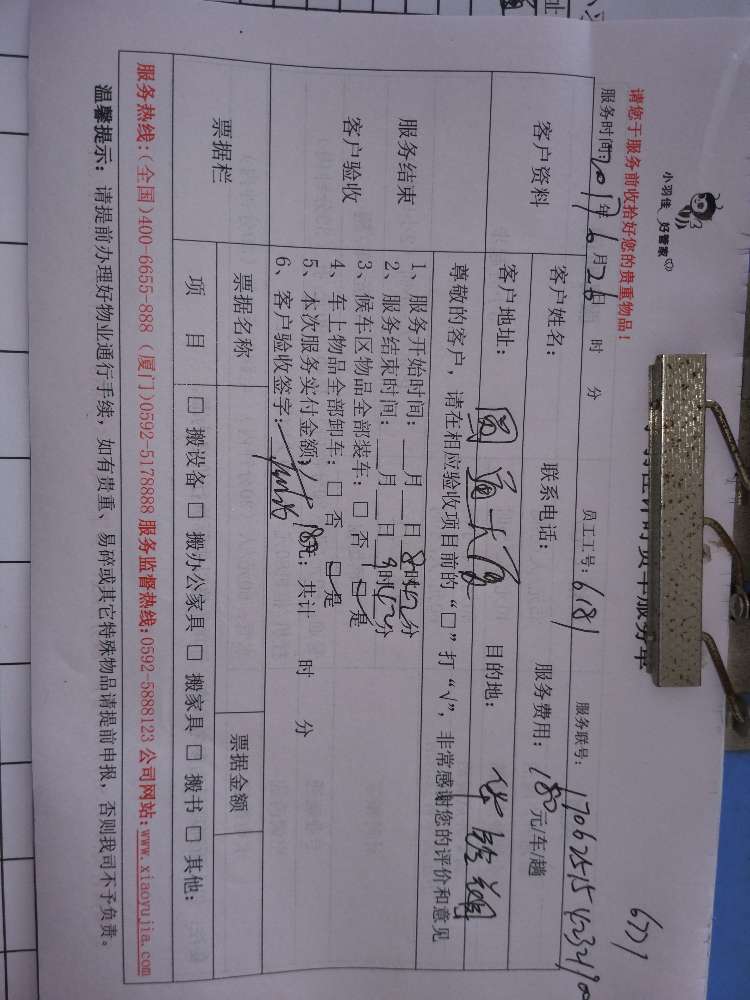 6771
小羽佳 好管家
请您于服务前收拾好您的贵重物品！
服务时间：2017年6月26日 时 分 员工工号：6181 服务联号：
客户资料
客户姓名： 联系电话： 服务费用：180元/车/趟
客户地址： 目的地：
尊敬的客户，请在相应验收项目前的“□”打“√”，非常感谢您的评价和意见
服务结束
客户验收
1、服务开始时间：__月__日8时50分
2、服务结束时间：__月__日9时50分
3、候车区物品全部装车：□ 否 □ 是
4、车上物品全部卸车：□ 否 □ 是
5、本次服务实付金额：180元；共计 时 分
6、客户验收签字：
票据栏
票据名称 票据金额
项 目 □ 搬设备 □ 搬办公家具 □ 搬家具 □ 搬书 □ 其他：
服务热线：(全国)400-6655-888 (厦门)0592-5178888 服务监督热线：0592-5888123 公司网站：www.xiaoyujia.com
温馨提示：请提前办理好物业通行手续，如有贵重、易碎或其它特殊物品请提前申报，否则我司不予负责。